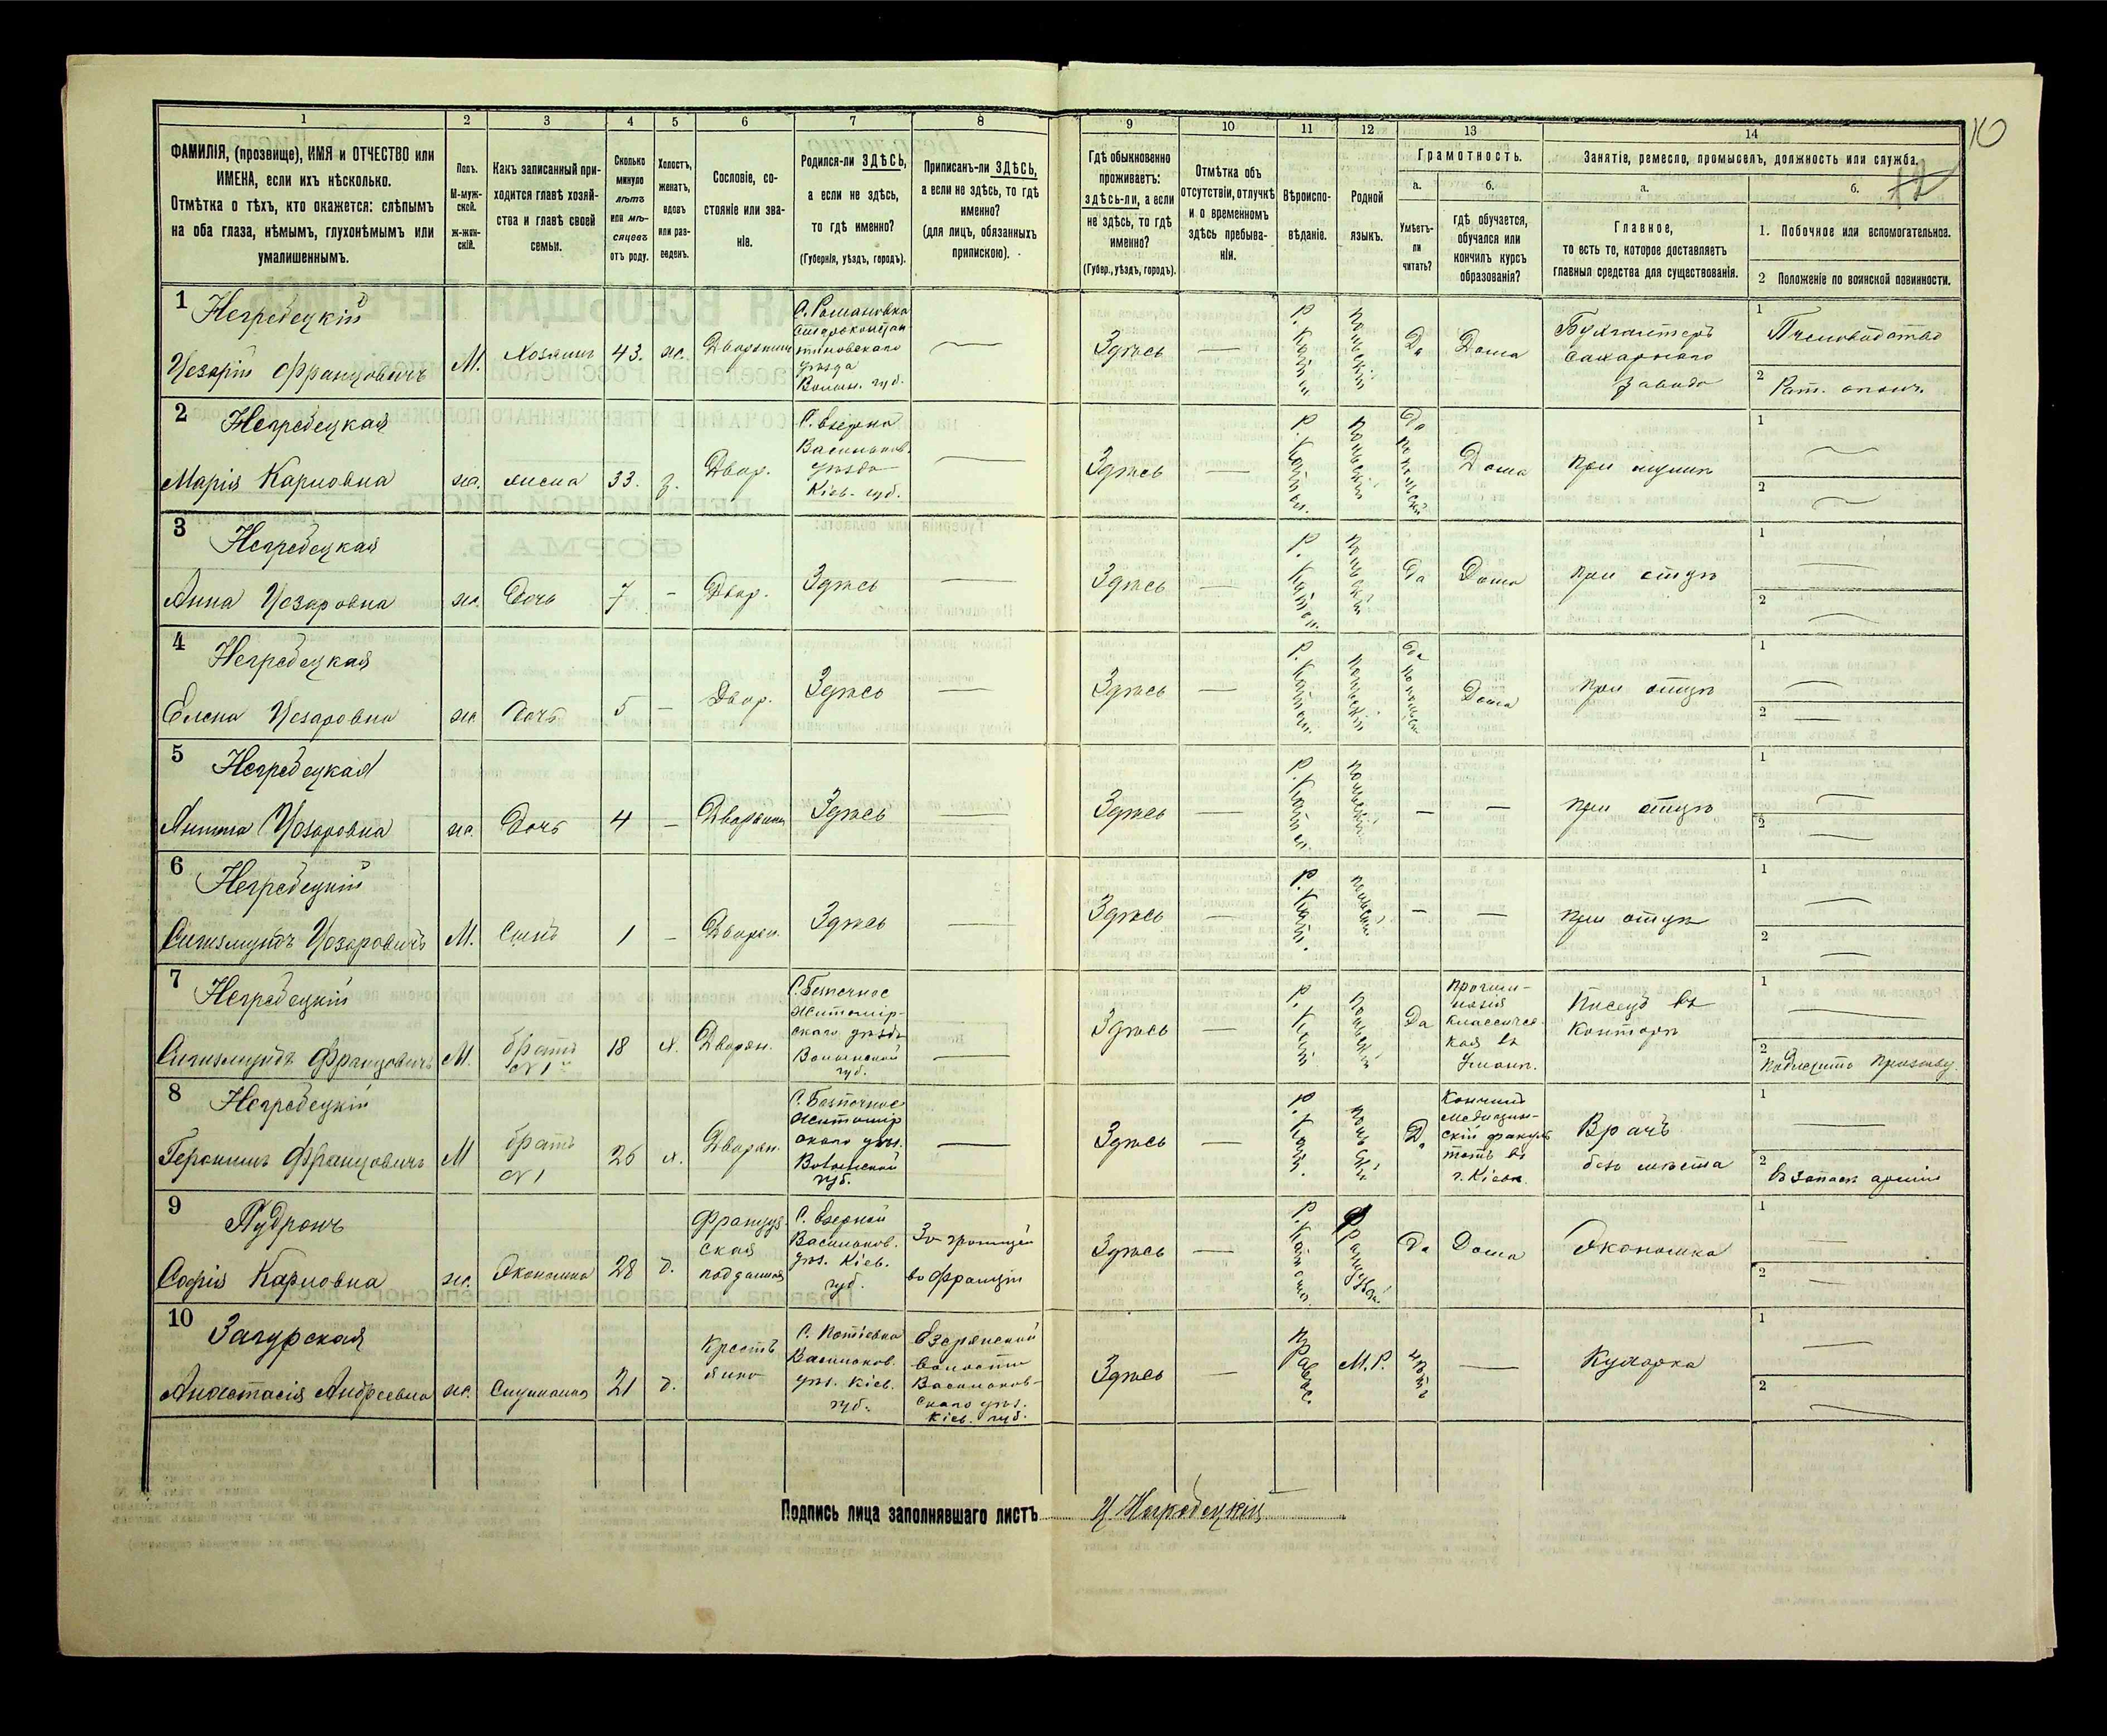 10
12
1
2
3
4
5
6
7
8
9
10
11
12
13
14
ФАМИЛІЯ, (прозвище), ИМЯ и ОТЧЕСТВО или
ИМЕНА, если ихъ нѣсколько.
Отмѣтка о тѣхъ, кто окажется: слѣпымъ
на оба глаза, нѣмымъ, глухонѣмымъ или
умалишеннымъ.
Полъ.
М-муж-
ской.
Ж-жен-
скій.
Какъ записанный при-
ходится главѣ хозяй-
ства и главѣ своей
семьи.
Сколько
минуло
лѣтъ
или мѣ-
сяцевъ
отъ роду.
Холостъ,
женатъ,
вдовъ
или раз-
веденъ.
Сословіе, со-
стояніе или зва-
ніе.
Родился-ли ЗДѢСЬ,
а если не здѣсь,
то гдѣ именно?
(Губернія, уѣздъ, городъ).
Приписанъ-ли ЗДѢСЬ,
а если не здѣсь, то гдѣ
именно?
(для лицъ, обязанныхъ
припискою).
Гдѣ обыкновенно
проживаетъ:
здѣсь-ли, а если
не здѣсь, то гдѣ
именно?
(Губер., уѣздъ, городъ).
Отмѣтка объ
отсутствіи, отлучкѣ
и о временномъ
здѣсь пребыва-
ніи.
Вѣроиспо-
вѣданіе.
Родной
языкъ.
Грамотность.
а.
Умѣетъ-
ли
читать?
б.
гдѣ обучается,
обучался или
кончилъ курсъ
образованія?
Занятіе, ремесло, промыселъ, должность или служба.
а.
Главное,
то есть то, которое доставляетъ
главныя средства для существованія.
б.
1. Побочное или вспомогательное.
2 Положеніе по воинской повинности.
1 Негребецкій
Цезарій Францовичъ
М.
Хозяинъ
43.
ж.
Дворянинъ
С. Романовка
Староконстан
тиновскаго
уѣзда
Волын. губ.
Здѣсь
Р. Катол.
Польскій
Да
Дома
Бухгалтеръ
сахарнаго
завода
1
Пчеловодство
2
Рат. ополч.
2 Негребецкая
Марія Карловна
ж.
жена
33.
з.
Двор.
С. Езерна
Васильков.
уѣзда
Кіев. губ.
Здѣсь
Р. Католич.
Польскій
Да
по польски
Дома
при мужѣ
1
2
3 Негребецкая
Анна Цезаровна
ж.
Дочь
7
Двор.
Здѣсь
Здѣсь
Р. Катол.
Польскій
Да
Дома
при отцѣ
1
2
4 Негребецкая
Елена Цезаровна
ж
Дочь
5
Двор.
Здѣсь
Здѣсь
Р. Катол.
Польскій
Да
по польски
Дома
при отцѣ
1
2
5 Негребецкая
Цезаровна
ж.
Дочь
4
Здѣсь
Здѣсь
Р. Катол.
Польскій
при отцѣ
1
2
6 Негребецкій
Сигизмундъ Цезаровичъ
М.
Сынъ
1
Дворян.
Здѣсь
Здѣсь
Р. Катол.
Польскій
при отцѣ
1
2
7 Негребецкій
Сигизмундъ Францовичъ
М.
братъ
№ 1
18
х.
Дворян.
Житомір-
скаго уѣзда
Волынской
губ.
Здѣсь
Р. Катол.
Польскій
Да
Прогим-
назія
классичес-
кая въ
Уманѣ.
Писецъ въ
Конторѣ
1
2
подлежитъ призыву.
8 Негребецкій
Геронимъ Францовичъ
М
братъ
№ 1
26
х.
Дворян.
Житомір
скаго уѣз.
Волынской
губ.
Здѣсь
Р. Катол.
Польскій
Да
Кончилъ
медицин-
скій факуль
тетъ въ
г. Кіевѣ.
Врачъ
безъ мѣста
1
2
въ запасѣ арміи
9 Пудронъ
Софія Карловна
ж.
Экономка
28
д.
Француз-
ская
подданная
С. Езерной
Васильков.
уѣз. Кіев.
губ.
За границей
во Франціи
Здѣсь
Р. Католич.
Француз.
Да
Дома
Экономка
1
2
10 Загурская
Анастасія Андреевна
ж.
Служанка
21
д.
Кресть
янка
Васильков.
уѣз. Кіев.
губ.
Езерянской
волости
Васильков-
скаго уѣз.
Кіев. губ.
Здѣсь
Правос.
М.Р.
нѣтъ
Кухарка
1
2
Подпись лица заполнявшаго листъ Ц Негребецкій